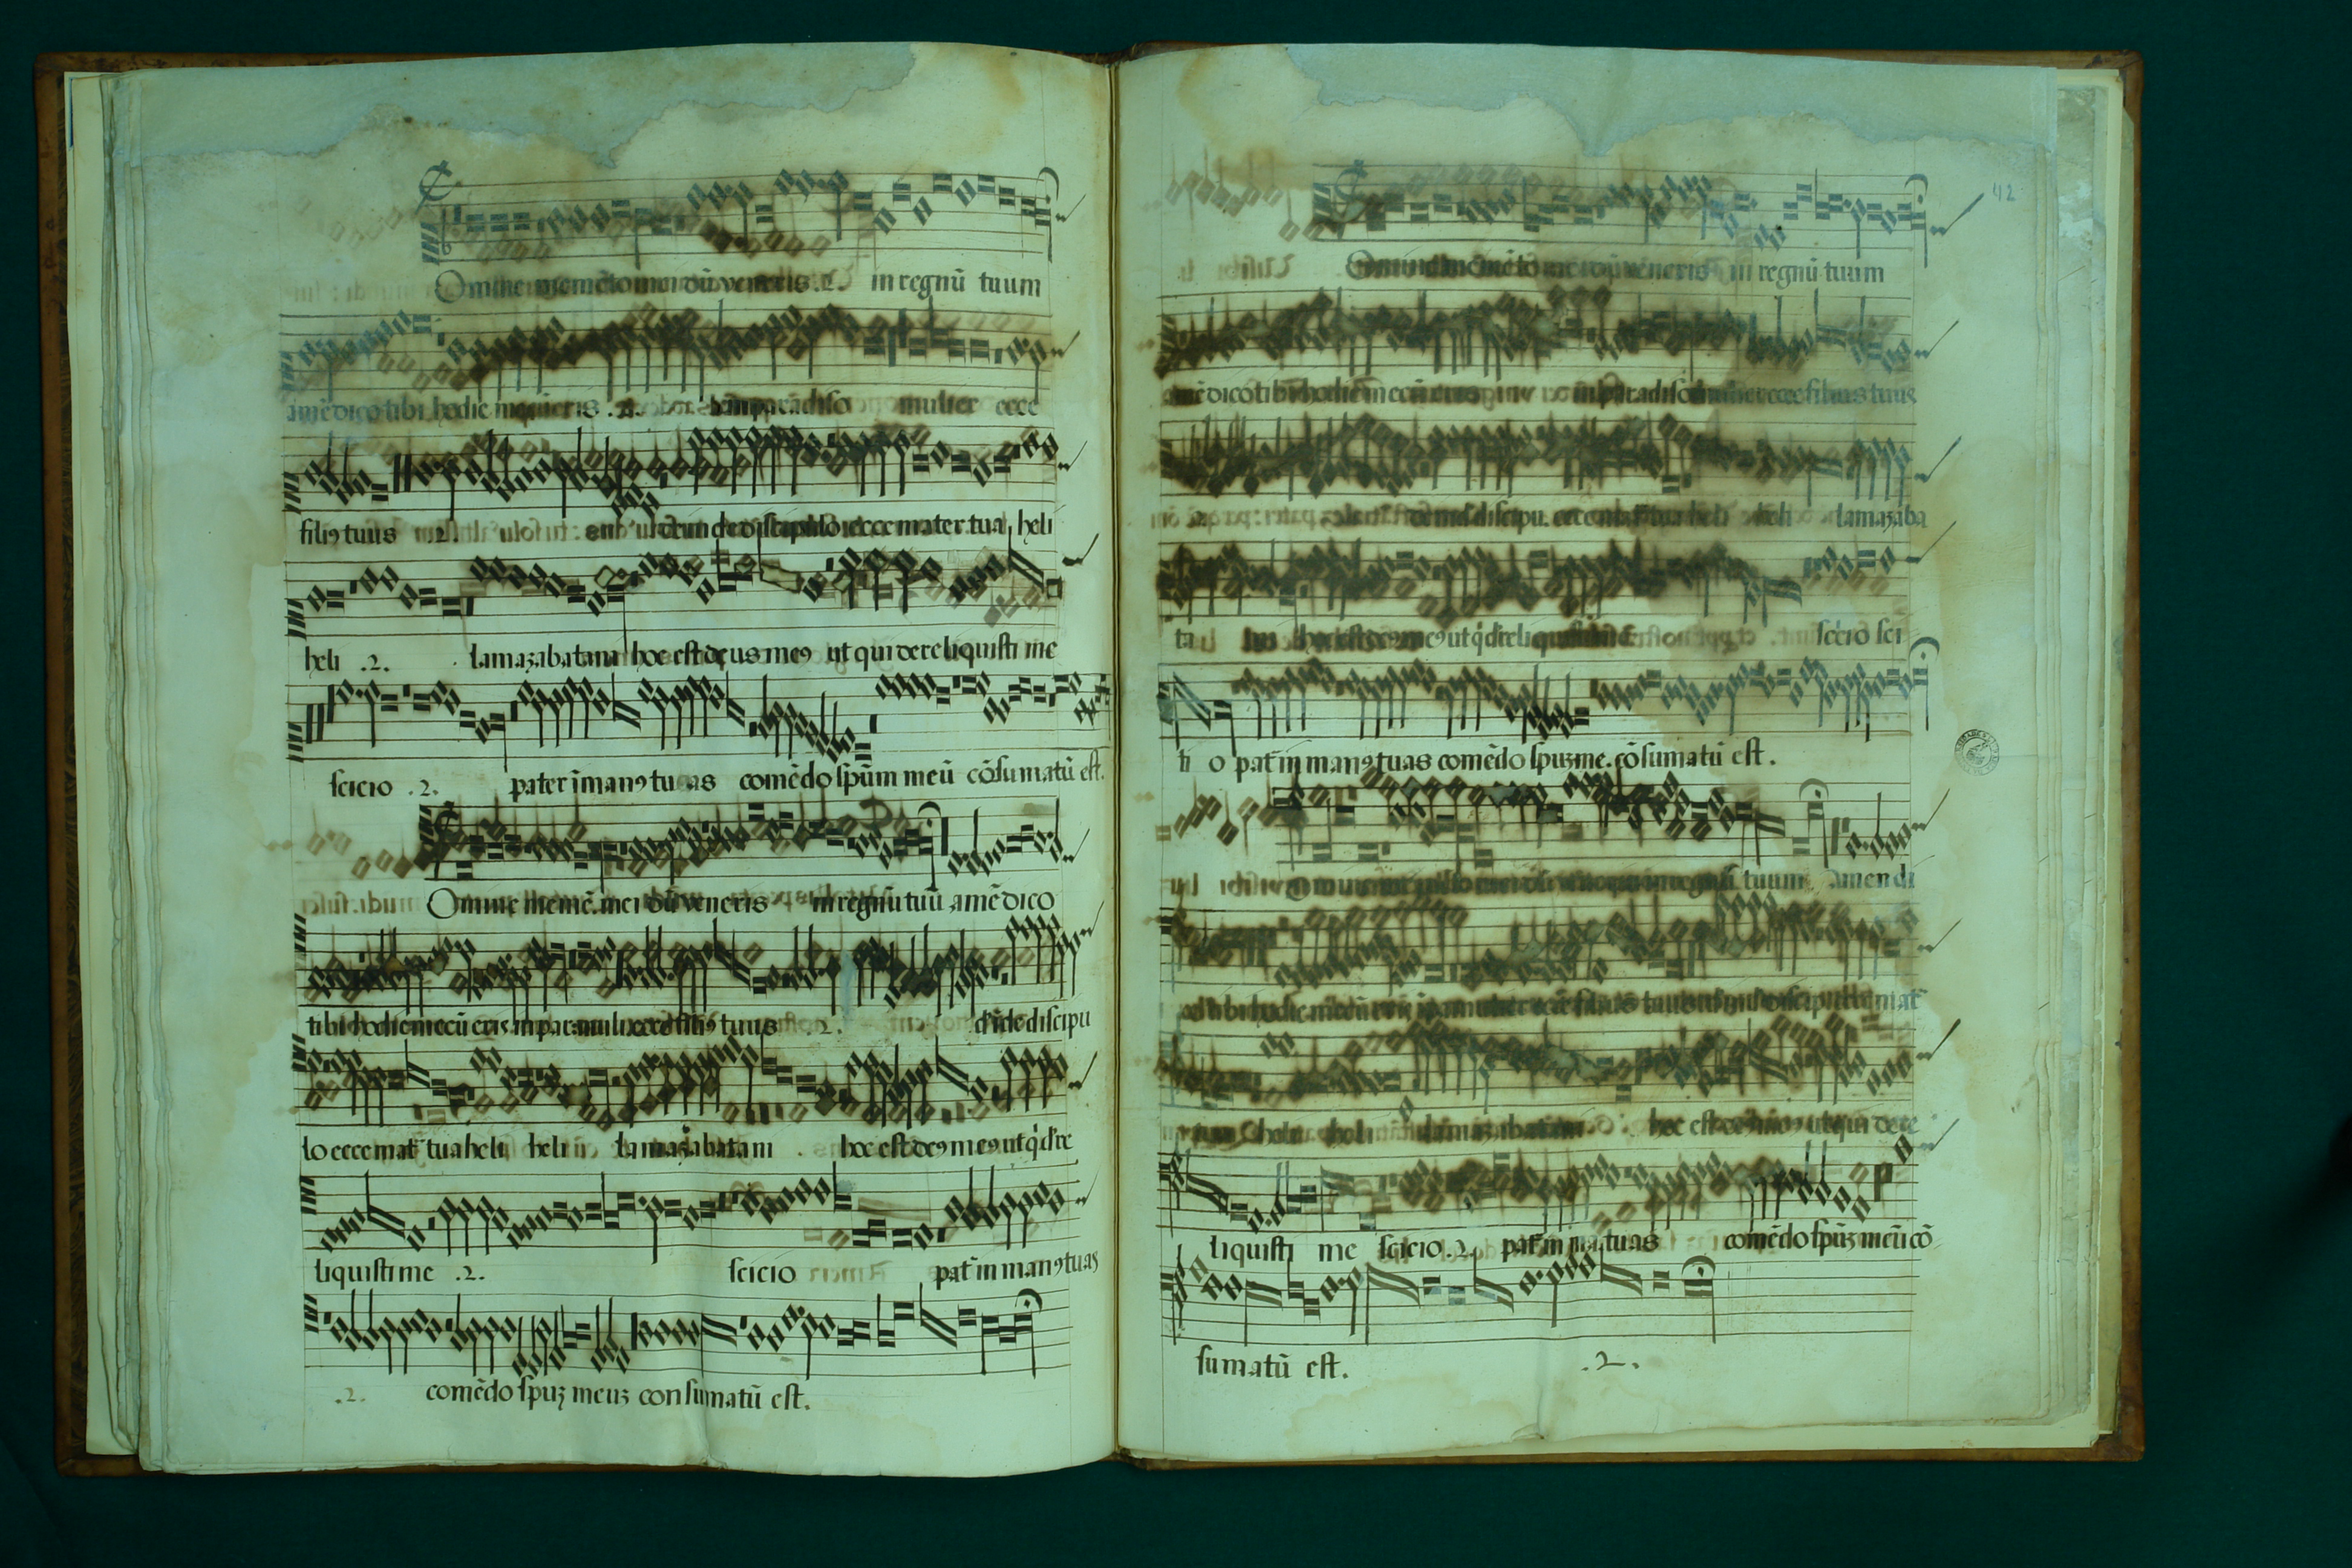 Omine memēto mei dū veneris .2. in regnū tuum
amē dico tibi hodie mecū eris .2. in paradiso mulier ecce
filiꝯ tuus .2. deinde discipulo ecce mater tua heli
heli .2. lamazabatani hoc est deus meꝯ ut qui dereliquisti me
scicio .2. pater ī manꝯ tuas comēdo spūm meū cōsumatū est.
Omine memē. mei dū veneris in regnū tuū amē dico
tibi hodie mecū eris in par. muli ecce filiꝯ tuus .2. d'ide discipu
lo ecce mat̄ tua heli heli lamazabatani hoc est deꝯ meꝯ ut q̇ d're
liquisti me .2. scicio pat̄ in manꝯ tuas
.2. comēdo spūꝫ meuꝫ consumatū est.
42
Omine memēto mei dū veneris in regnū tuum
amē dico tibi hodie mecū eris in paradiso mulier ecce filius tuus
deinde discipu. ecce mat̄ tua heli heli lamazaba
ta hoc est deꝯ meꝯ ut q̇ d'reliquisti scicio sci
ti o pat̄ in manꝯ tuas comēdo spuꝫ me. cōsumatū est.
in regnū tuum Amen di
co tibi hodie mecū ecce filius tuus discipulo mat̄
tua heli heli lamazabatani hoc est deꝯ meꝯ ut qui dere
liquisti me scicio .2. pat̄ in ma. tuas comēdo spūꝫ meū cō
sumatū est. .2.